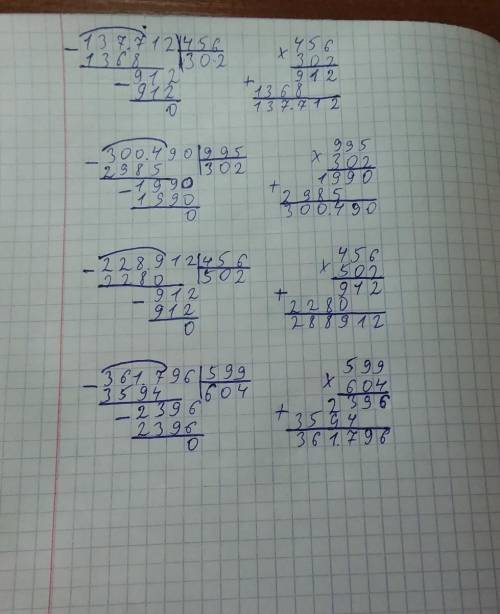 - 137.712 | 456 × 456
1368 | 302 302
- 912 + 912
912 1368
0 137.712
- 300.490 | 995 × 995
2985 | 302 302
- 1990 + 1990
1990 2985
0 300.490
- 228.912 | 456 × 456
2280 | 502 502
- 912 + 912
912 2280
0 288912
- 361.796 | 599 × 599
3594 | 604 604
- 2396 + 2396
2396 3594
0 361.796